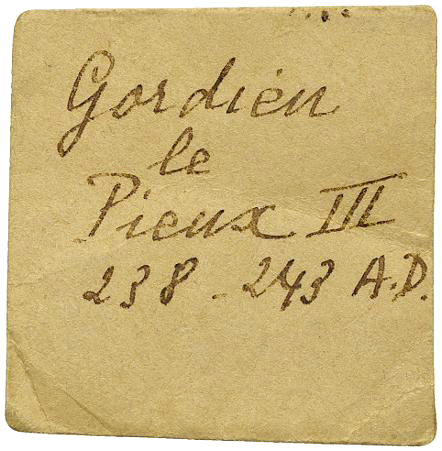 Gordien
le
Pieux III
238 - 243 A.D.